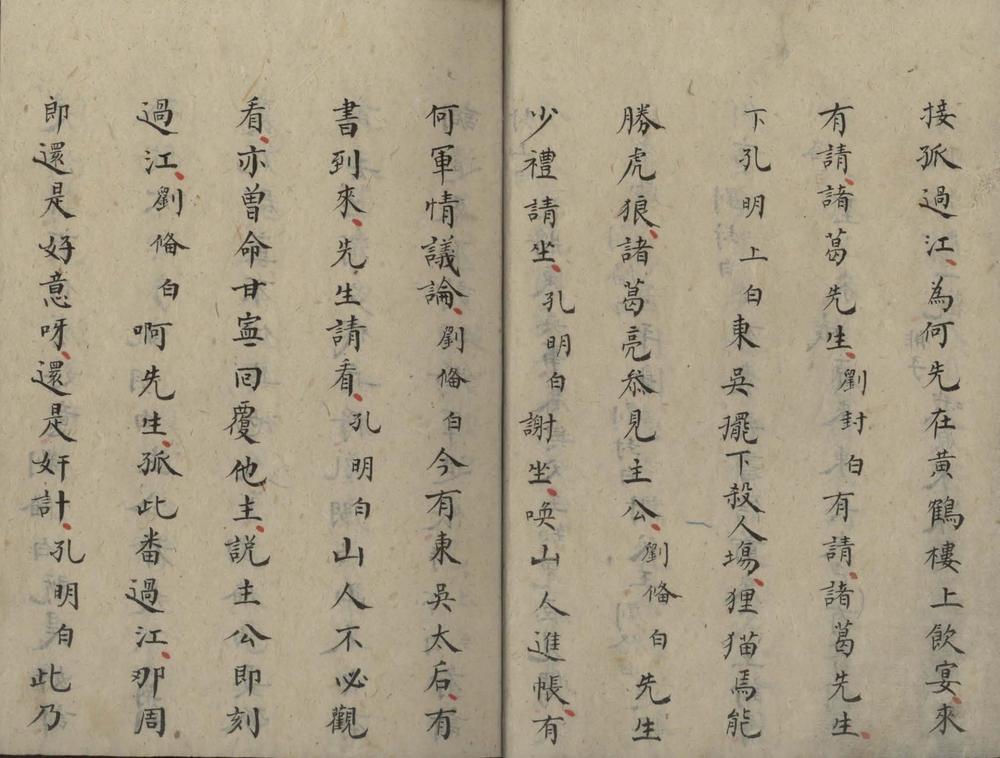 接孤過江、為何先在黃鶴樓上飲宴、來
有請、諸葛先生、劉封白有請、諸葛先生、
下孔明上白東吳擺下殺人塲、狸猫焉能
勝虎狼、諸葛亮叅見主公、劉俻白先生
少禮請坐、孔明白謝坐、喚山人進帳、有
何軍情議論、劉俻白今有東吳太后、有
書到來、先生請看、孔明白山人不必觀
看、亦曾命甘寧回覆他主、説主公即刻
過江、劉俻白啊先生、孤此畨過江、那周
郎還是好意呀、還是奸計、孔明白此乃